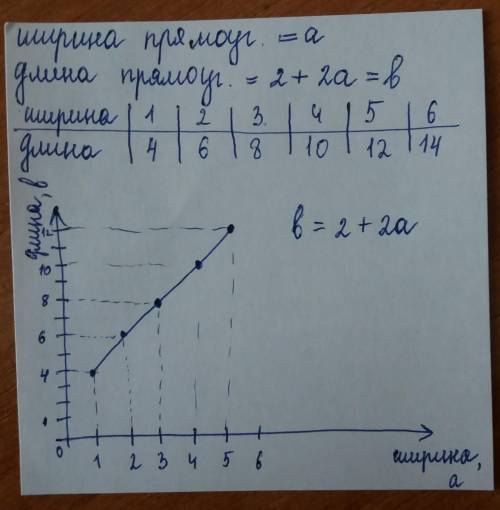 ширина прямоуг. = a
длина прямоуг. = 2 + 2a = b
ширина 1 2 3 4 5 6
длина 4 6 8 10 12 14
длина, b
b = 2 + 2a
10
8
6
4
0 1 2 3 4 5 6
ширина, a